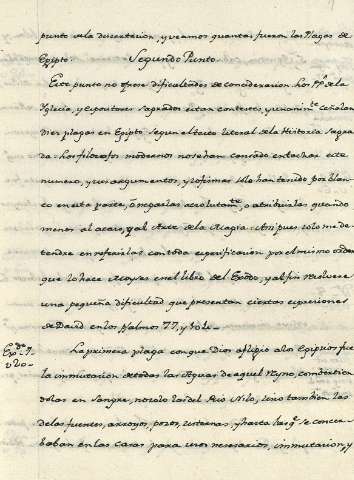 punto de la disertacion, y veamos quantas fueron las Plagas de
Egipto. Segundo Punto.
Este punto no ofrece dificultades de consideracion. Los PP. de la
Yglesia, y Expositores sagrados estan contestes, y unanimte. señalan
Diez plagas en Egipto segun el texto literal de la Historia sagra
da. Los filosofos modernos no se han cansado en tachar este
numero, y sus argumentos, y sofismas solo han tenido por blan
co en esta parte, ó negarlas absolutamte. ó atribuirlas quando
menos al acaso, y al Arte de la Magia. Asi pues solo me de
tendre en referirlas con toda especificacion por el mismo orden
que lo hace Moyses en el libro del Exodo, y al fin resolvere
una pequeña dificultad que presentan ciertas expresiones
de David en los Psalmos 77, y 104.
Exodo 7.
v 20.
La primera plaga con que Dios afligio a los Egipcios fue
la inmutacion de todas las Aguas de aquel Reyno, convirtien
dolas en sangre, no solo las del Rio Nilo, sino tambien las
de las fuentes, arroyos, pozos, cisternas, y hasta las q.e se conser
baban en las casas para usos necesarios, inmutacion, y